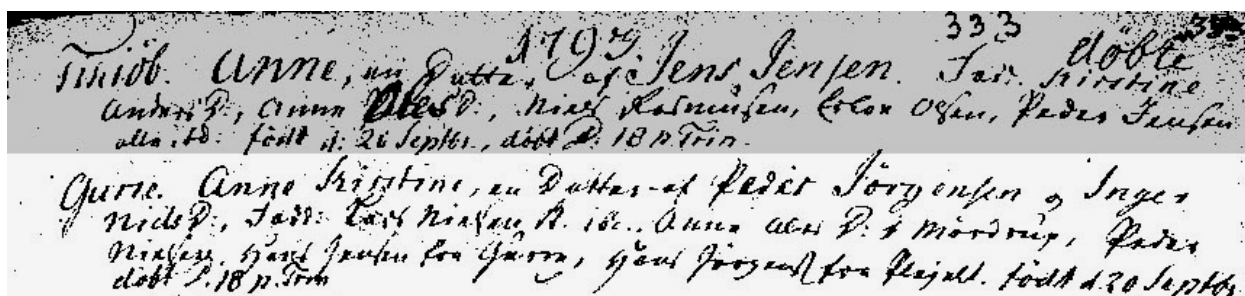 1797 333 døbte
Tikiöb. Anne, en Datter af Jens Jensen. Fadd. Kirstine
Anders D., Anne Oles D., Niels Rasmusen, Olsen, Peder Jensen
alle ibd. født d: 26 Septbr., døbt D. 18 p. Trin.
Gurre. Anne Kirstine, en Datter af Peder Jörgensen og Inger
Niels D., Fadd: Lars Nielsen Anne Oles D. Mördrup, Peder
Nielsen, Hans Jensen fra Gurre, Hans Jörgens. fra Plejelt. født d. 20 Septbr.
døbt D. 18 p. Trin